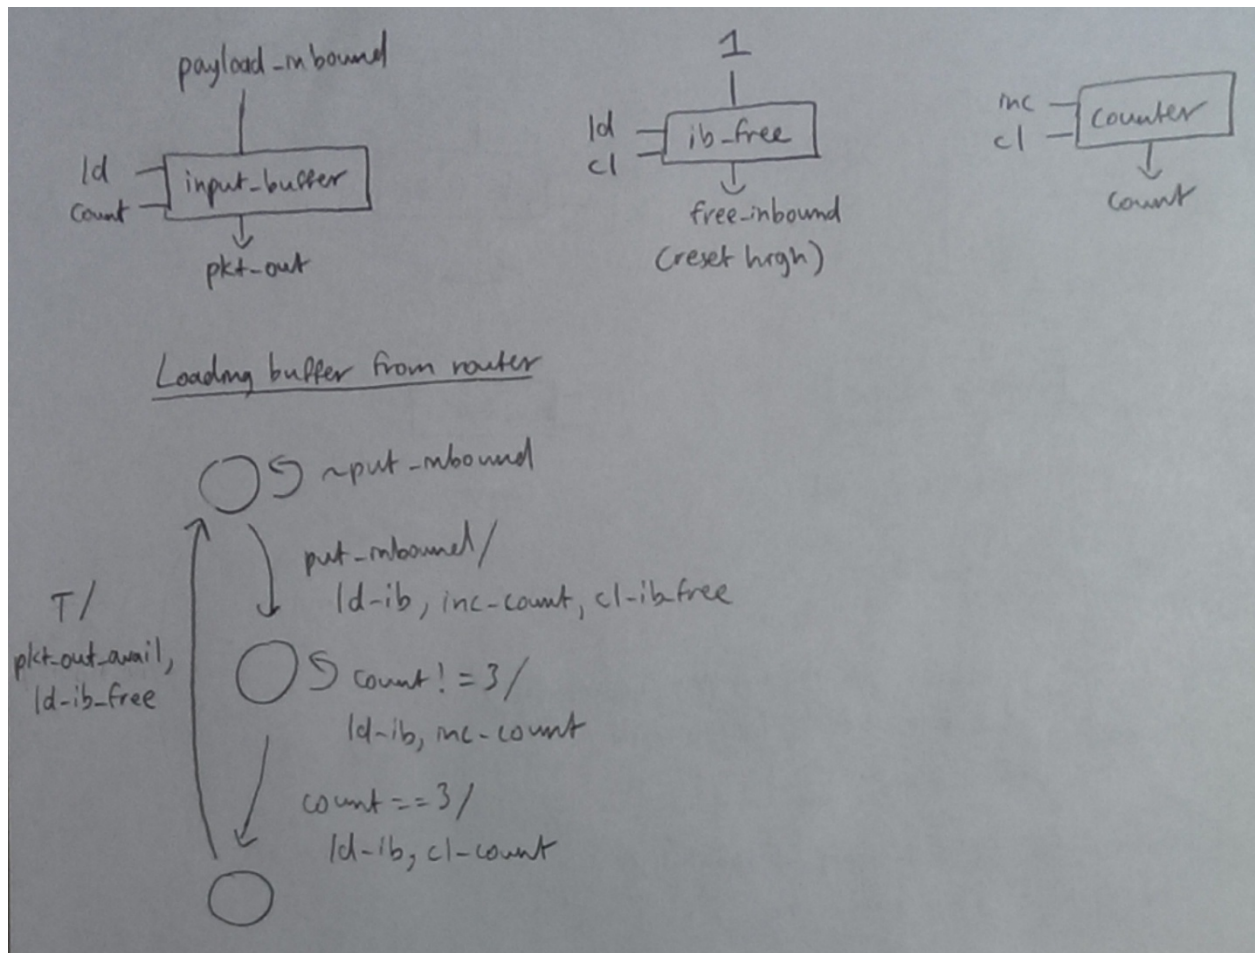 payload_inbound
ld
count
input_buffer
pkt_out
1
ld
cl
ib_free
free_inbound
(reset high)
inc
cl
counter
count
Loading buffer from router
~put_inbound
put_inbound/
ld-ib, inc-count, cl-ib_free
T/
pkt_out_avail,
ld-ib_free
count! = 3/
ld-ib, inc-count
count == 3/
ld-ib, cl-count